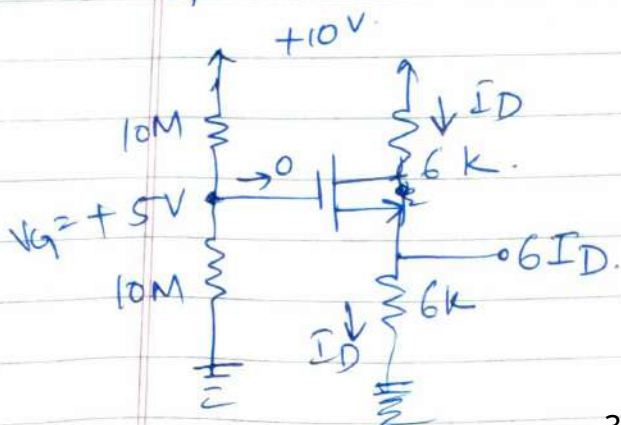 +10V.
10M
↓ ID
6 K.
→ 0
VG = + 5V
6ID.
10M
ID ↓
6K